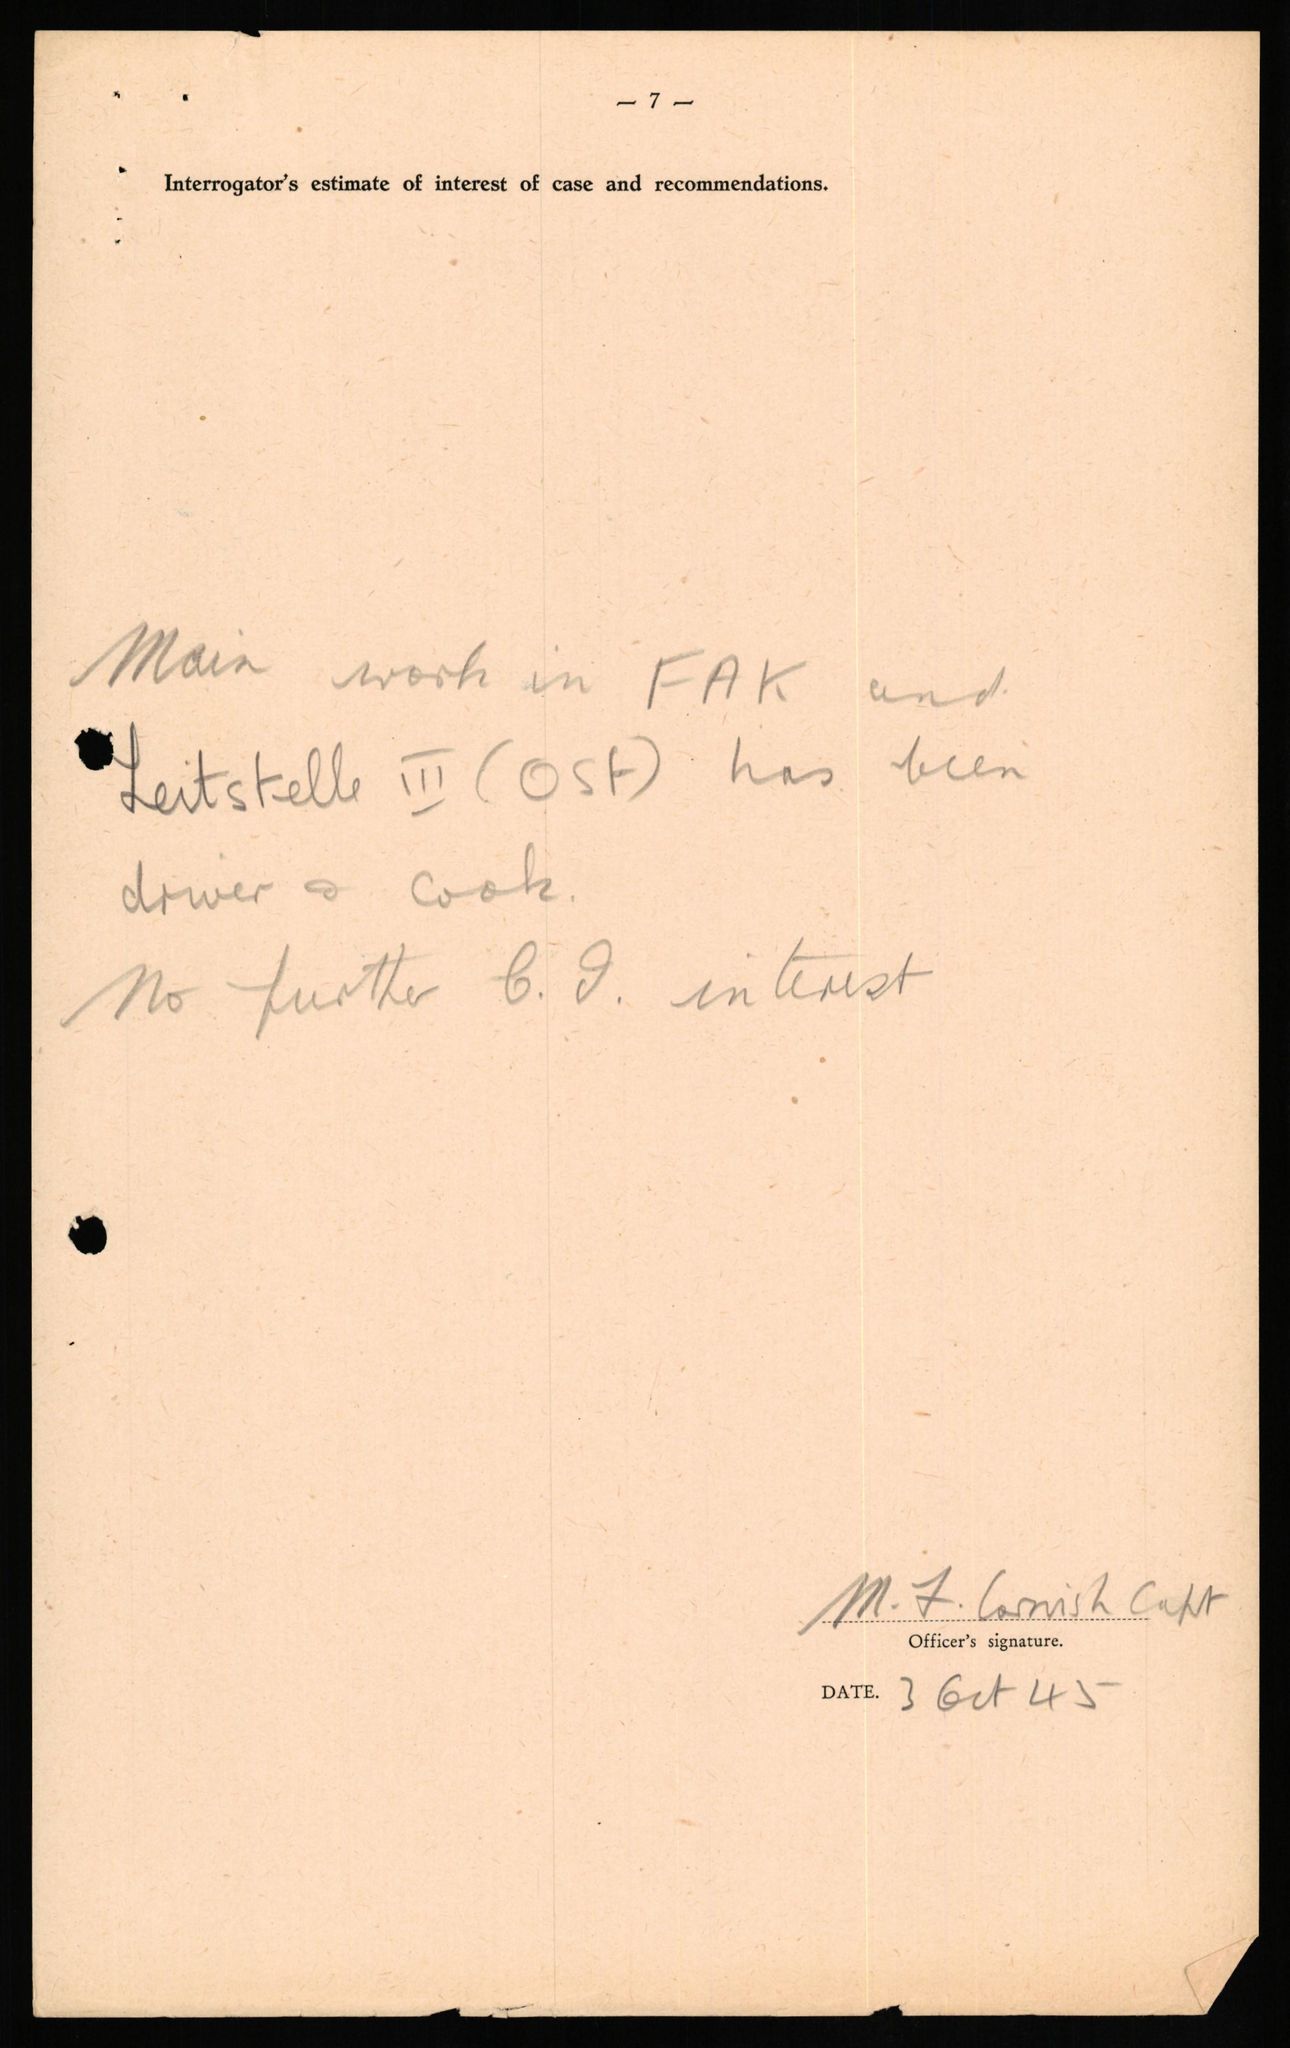 — 7 —
Interrogator's estimate of interest of case and recommendations.
Main work in FAK and
Leitstelle III (Ost) has been
driver & cook.
No further C.I. interest
M. F. Cornish Capt
Officer's signature.
DATE. 3 Oct 45